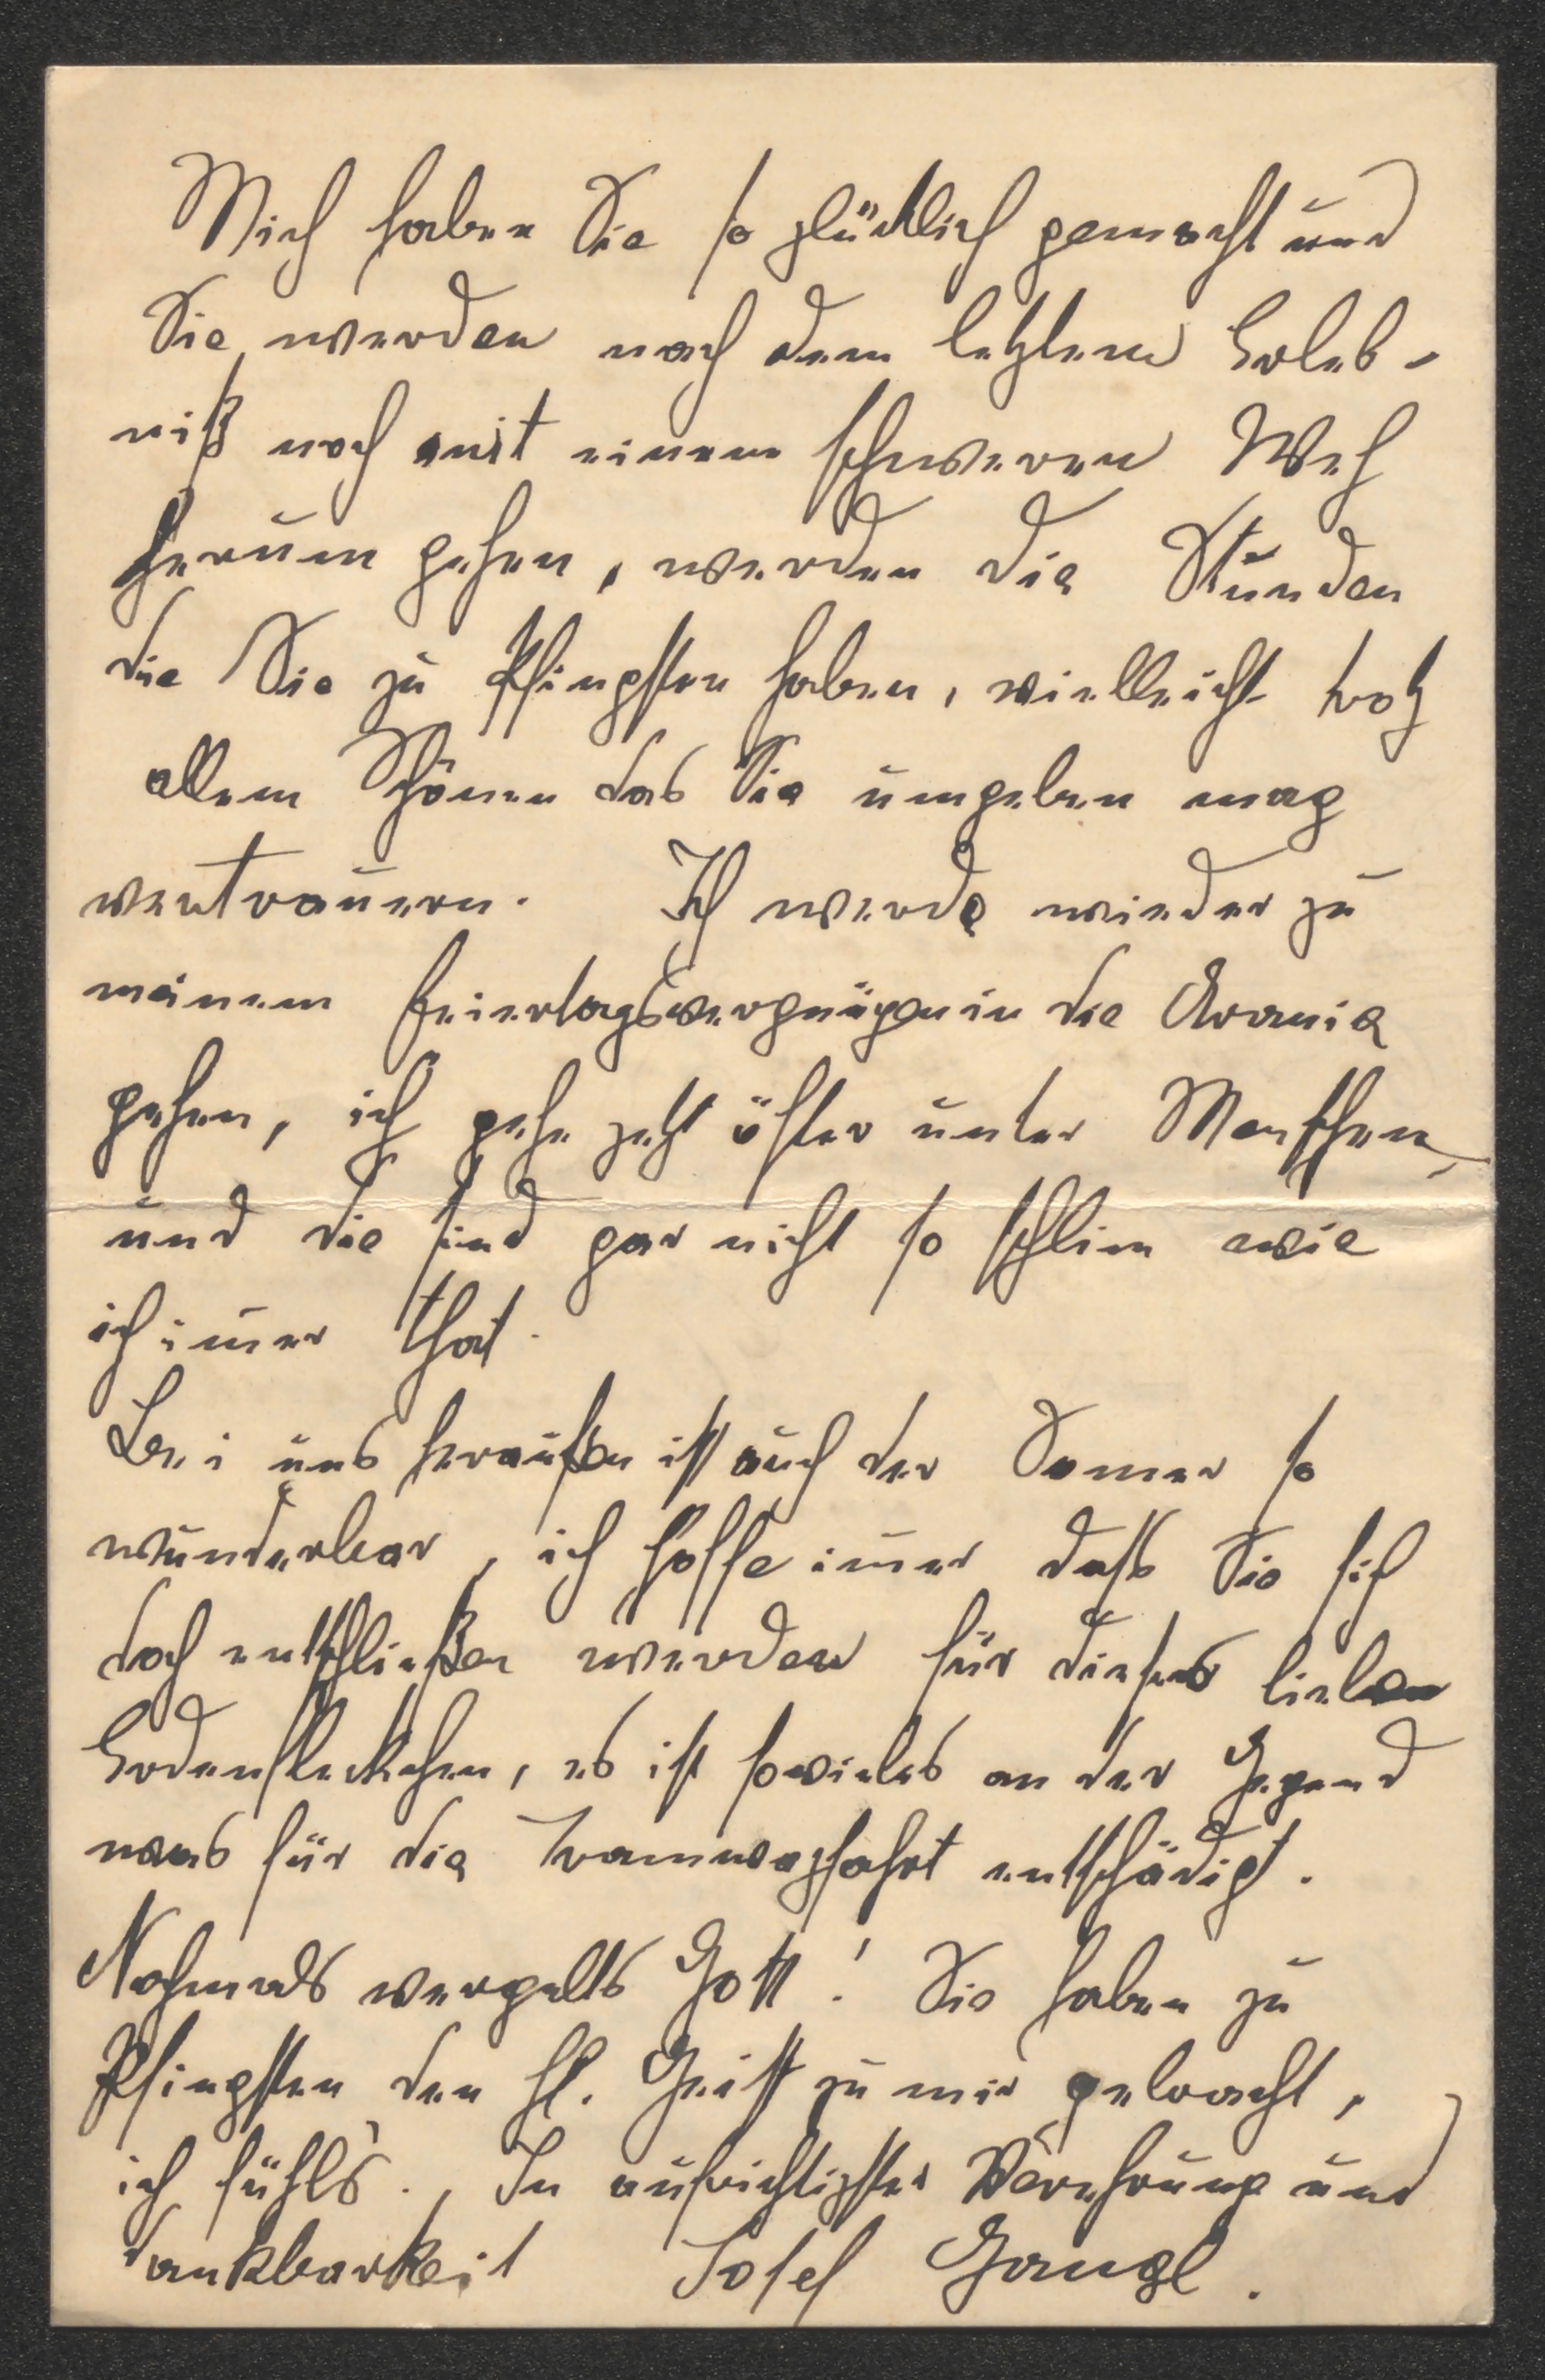 Mich haben Sie so glücklich gemacht und
Sie werden nach dem letzten Erleb-
niß noch mit einem schweren Weh
herum gehen, werden die Stunden
die Sie zu Pfingsten haben, vielleicht trotz
allem Schönen das Sie umgeben mag
vertrauern. Ich werde wieder zu
meinem Feiertagsvergnügen in die Urania
gehen, ich gehe jetzt öfter unter Menschen,
und die sind gar nicht so schlim wie
ich imer that.
Bei uns heraußen ist auch der Somer so
wunderbar, ich hoffe imer dass Sie sich
doch entschließen werden für dieses liebe
Erdenfleckchen, es ist sovieles an der Gegend
was für die Tramwayfahrt entschädigt.
Nochmals vergelts Gott! Sie haben zu
Pfingsten den hl. Geist zu mir gebracht,
ich fühl's. In aufrichtigster Verehrung und
Dankbarkeit Josef Gangl.